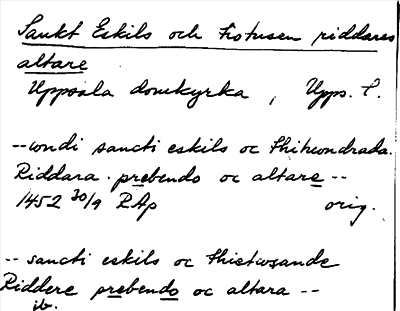 Sankt Eskils och Tiotusen riddares
altare
Uppsala domkyrka, Upps. S.
-- undi sancti eskils oc thihundrada.
Riddara. prebendo oc altare --
1452 30/9 RAp orig.
-- sancti eskils oc thietusande
Riddere prebendo oc altara --
ib.